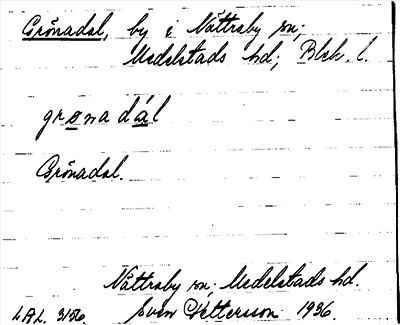 Grönadal, by i Nättraby sn;
Medelstads hd; Blek. l.
grønadál
Grönadal.
Nättraby sn; Medelstads hd.
LAL. 3156. Sven Pettersson 1936.